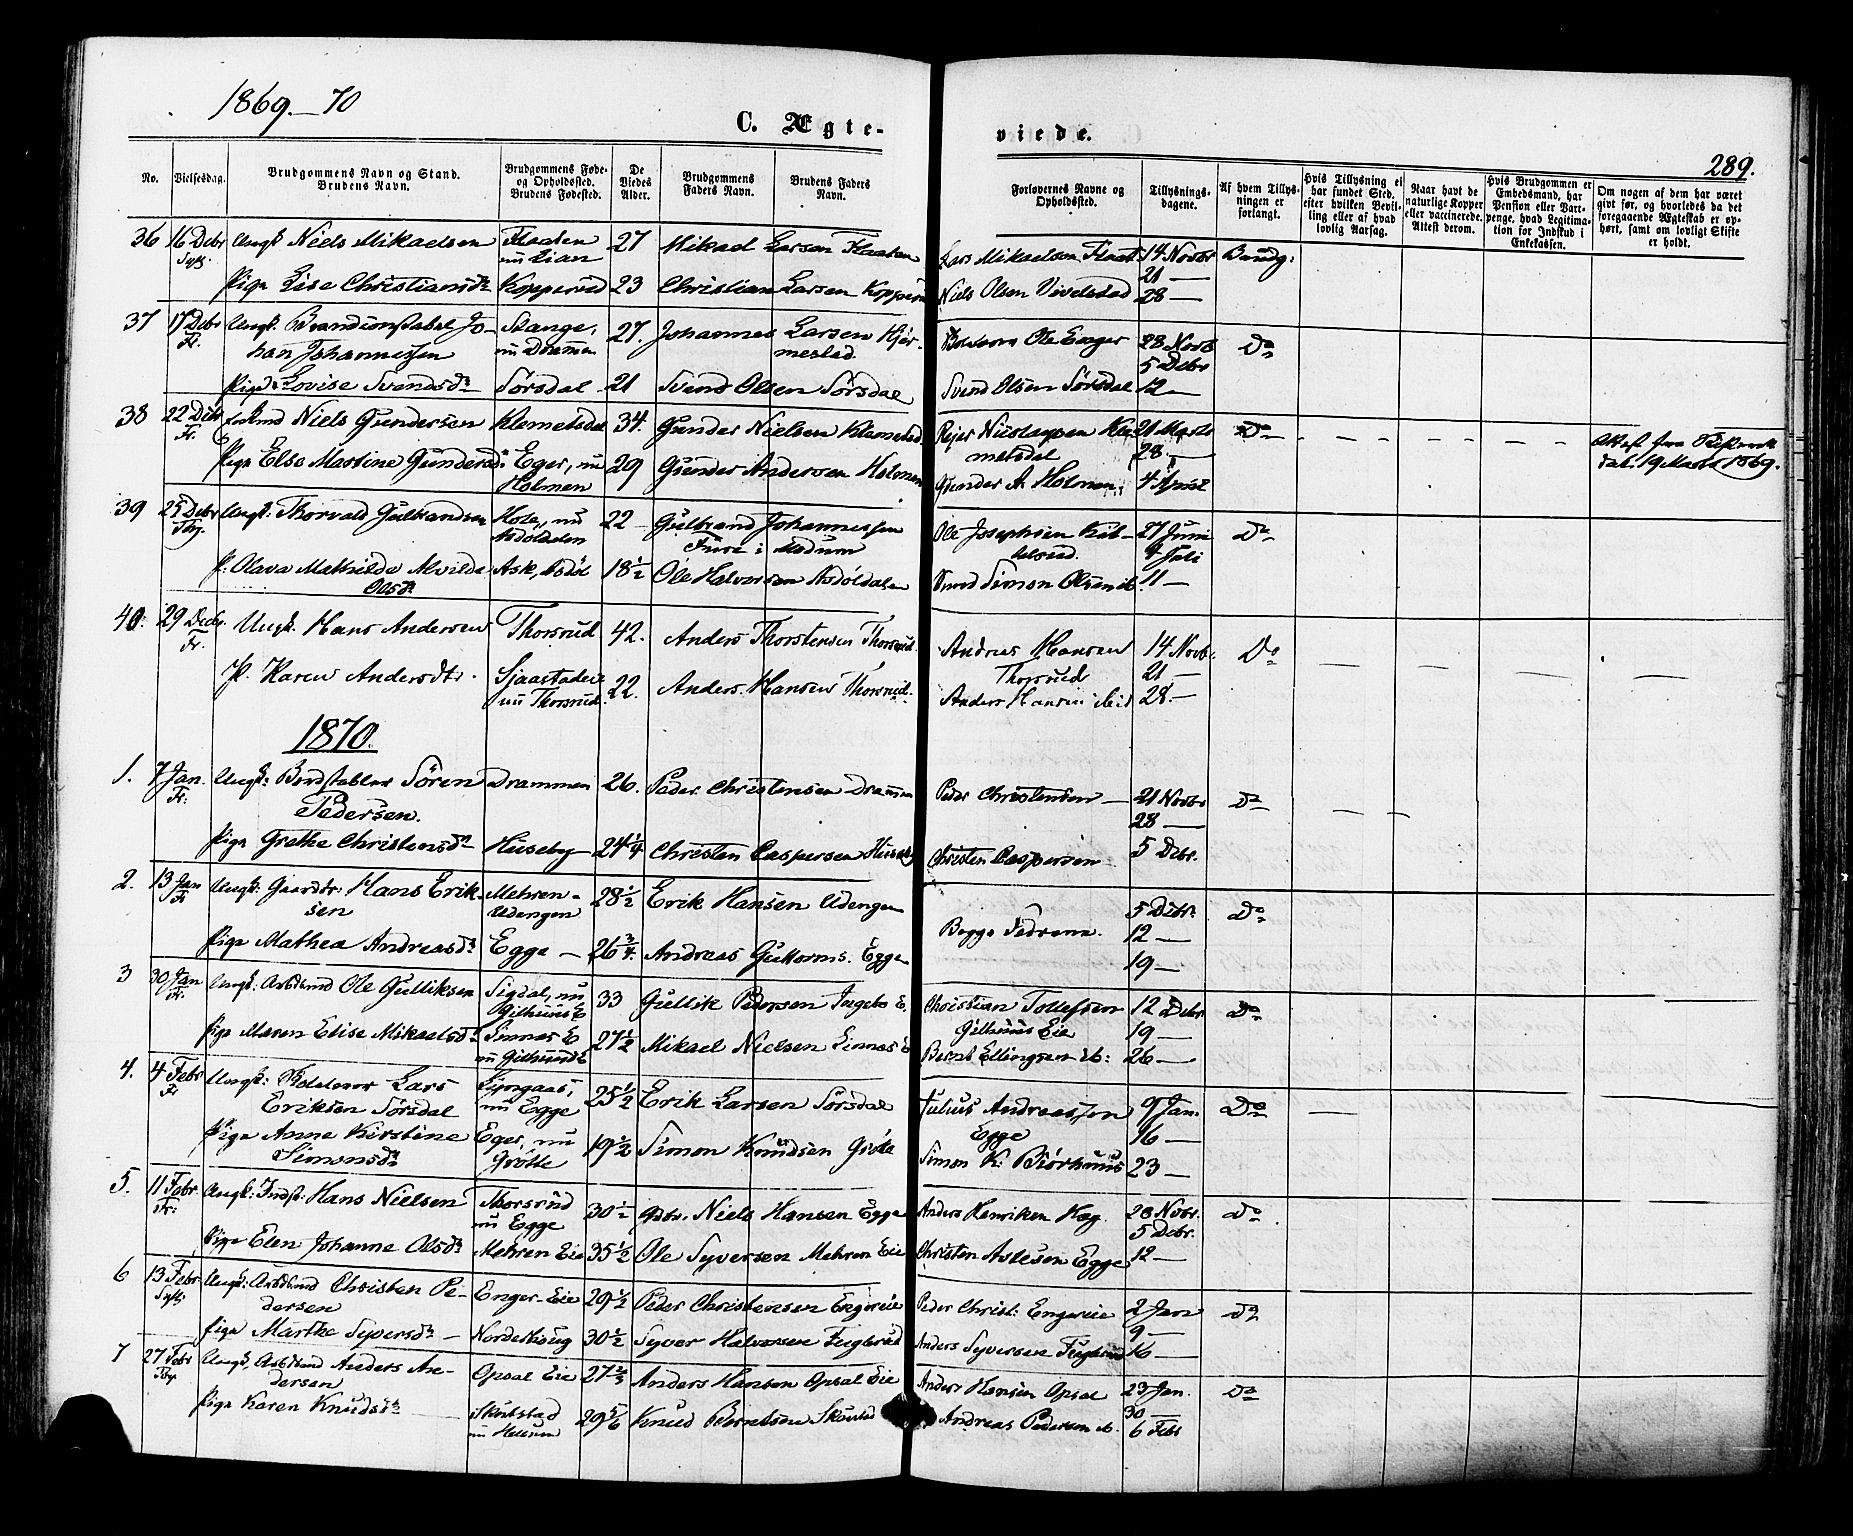 1869.—70
C. Ægte-
viede.
289.
No.
Vielsesdag.
Brudgommens Navn og Stand.
Brudens Navn.
Brudgommens Føde-
og Opholdssted.
Brudens Fødested.
De
Viedes
Alder.
Brudgommens
Faders Navn.
Brudens Faders
Navn.
Forlovernes Navne og
Opholdssted.
Tillysnings-
dagene.
Af hvem Tillys-
ningen er
forlangt.
Hvis Tillysning ei
har fundet Sted,
efter hvilken Bevil-
ling eller af hvad
lovlig Aarsag.
Naar havt de
naturlige Kopper
eller vaccinerede.
Attest derom.
Hvis Brudgommen er
Embedsmand, har
Pension eller Vart-
penge, hvad Legitima-
tion for Indskud i
Enkekassen.
Om nogen af dem har været
gift før, og hvorledes da det
foregaaende Ægteskab er op-
hørt, samt om lovligt Skifte
er holdt.
36 16 Debr Ungk Niels Mikaelsen Flaaten 27 Mikael Larsen Flaaten Lars Mikaelsen Flaat. 14 Novbr Brudg:
nu Lian 21 —
Pige Lise Christiansdr Kopperud 23 Christian Larsen Kopperud Niels Olsen Vivelstad 28 —
37 17 Debr Ungk. Brandconstabel Jo- Stange, 27. Johannes Larsen Hjer- Ole Enger 28 Novb Do
Fr. han Johannessen nu Drammen mestad 5 Debr
Pige Lovise Svendsdr Sørsdal 21 Svend Olsen Sørsdal Svend Olsen Sørsdal 12 —
38 22 Debr Niels Gundersen Klemetsdal 34. Gunder Nielsen Klemetsd Rejer Nicolaysen Kle 21 Marts Do Attest fra
Fr. metsdal 28 — dat. 19 Marts 1869.
Pige Else Martine Gundersd: Eger, nu 29 Gunder Andersen Holmen Gunder A. Holmen 4 April
Holmen
39 25 Debr Ungk: Thorvald Gulbrandsen Hole, nu 22 Gulbrand Johannessen Ole Josephsen 27 Juni Do
Asdøldalen Furre i Modum 4 Juli
P. Olava Mathilde Alvilde Ask, Asdøl 18½ Ole Halvorsen Asdøldalen Simon Olsen 11 —
Olsdr
40: 29 Decbr. Ungk. Hans Andersen Thorsrud 42. Anders Thorstensen Thorsrud. Andreas Hansen 14 Novbr. Do
Fr. Thorsrud 21 —
P. Karen Andersdtr. Sjaastadeie 22. Anders Hansen Thorsrud. Anders Hansen ibid 28 —
nu Thorsrud.
1870.
1. 7 Jan. Ungk: Søren Drammen 26. Peder Christensen Drammen Peder Christensen — 21 Novbr Do
Fr: Pedersen. 28 —
Pige Grethe Christensdr Huseby 24¼ Christen Caspersen Huseby Christen Caspersen 5 Debr.
2. 13 Jan Ungk: Gaardbr: Hans Erik- Mehren- 28½ Erik Hansen Udengen 5 Debr. Do
Fr sen Udengen Begge Fædrene. 12 —
Pige Mathea Andreasdr Egge — 26¾ Andreas Guttorms. Egge 19 —
3 30 Jan Ungk: Arbdsmd Ole Gulliksen Sigdal, nu 33 Gullik Pedersen Christian Tollefsen 12 Debr Do
Fr. Gilhuus E Gilhuus Eie 19 —
Pige Maren Elise Mikaelsdr Linnes E 27½ Mikael Nielsen Linnes E Bernt Ellingsen ib: 26 —
nu Gilhuus E
4. 4 Febr Ungk: Lars 25½ Erik Larsen Sørsdal Julius Andreassen 9 Jan. Do
Fr Eriksen Sørsdal nu Egge Egge 16 —
Pige Anne Kirstine Eger, nu 19½ Simon Knudsen Grøtte Simon K. Bjørhuus 23 —
Simonsdr Grøtte
5. 11 Febr. Ungk: Indst: Hans Nielsen Thorsrud 30½ Gbr. Niels Hansen Egge Anders Henriksen Hæg. 28 Novbr. Do
Fr: nu Egge 5 Debr.
Pige Elen Johanne Olsdr Mehren Eie 35½ Ole Syversen Mehren Eie Christen Aslesen Egge 12 —
6 13 Febr Ungk: Arbdsmd Christen Pe- Enger-Eie 29½ Peder Christensen Engereie Peder Christ: Engereie 2 Jan Do
dersen 9 —
Pige Marthe Syversdr — Nordeskoug 30½ Syver Halvorsen Fuglerud Anders Syversen Fuglerud 16 —
7 27 Febr Ungk, Arbdsmd Anders An- Opsal Eie 27⅔ Anders Hansen Opsal Eie Anders Hansen Opsal 23 Jan. Do
dersen 30 —
Pige Karen Knudsdr Skustad 29⅚ Knud Berntsen Skustad Andreas Pedersen ib. 6 Febr